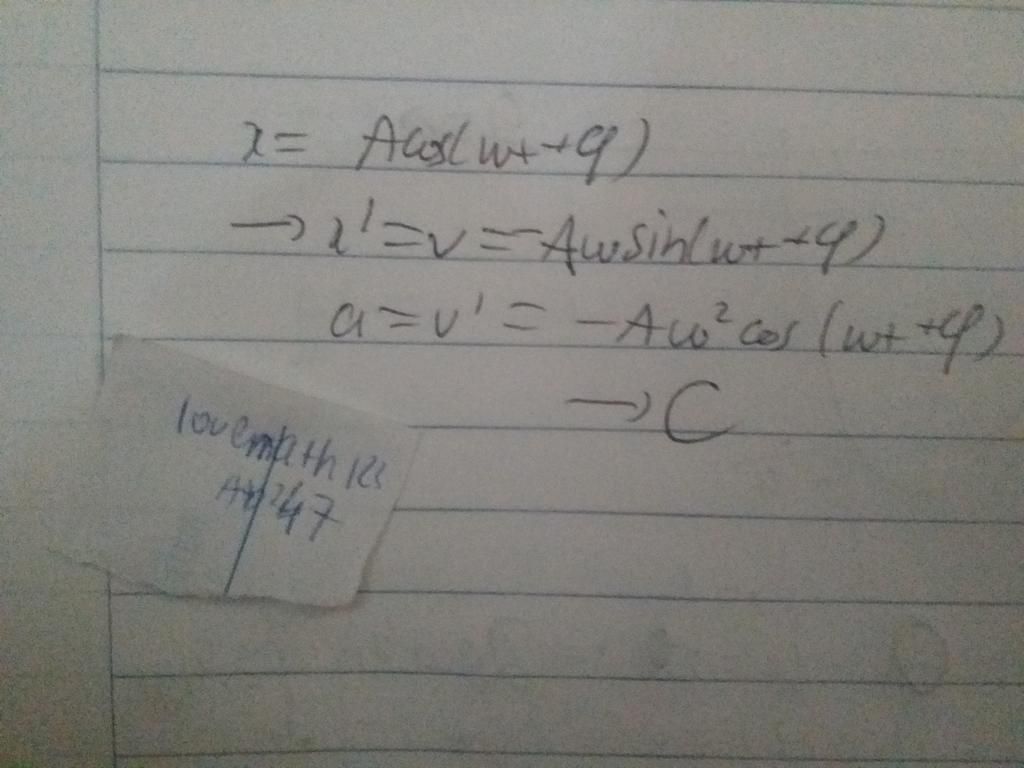 x = Acos(ωt+φ)
→ x' = v = -Aωsin(ωt+φ)
a = v' = -Aω²cos(ωt+φ)
→ C
lovemath
247